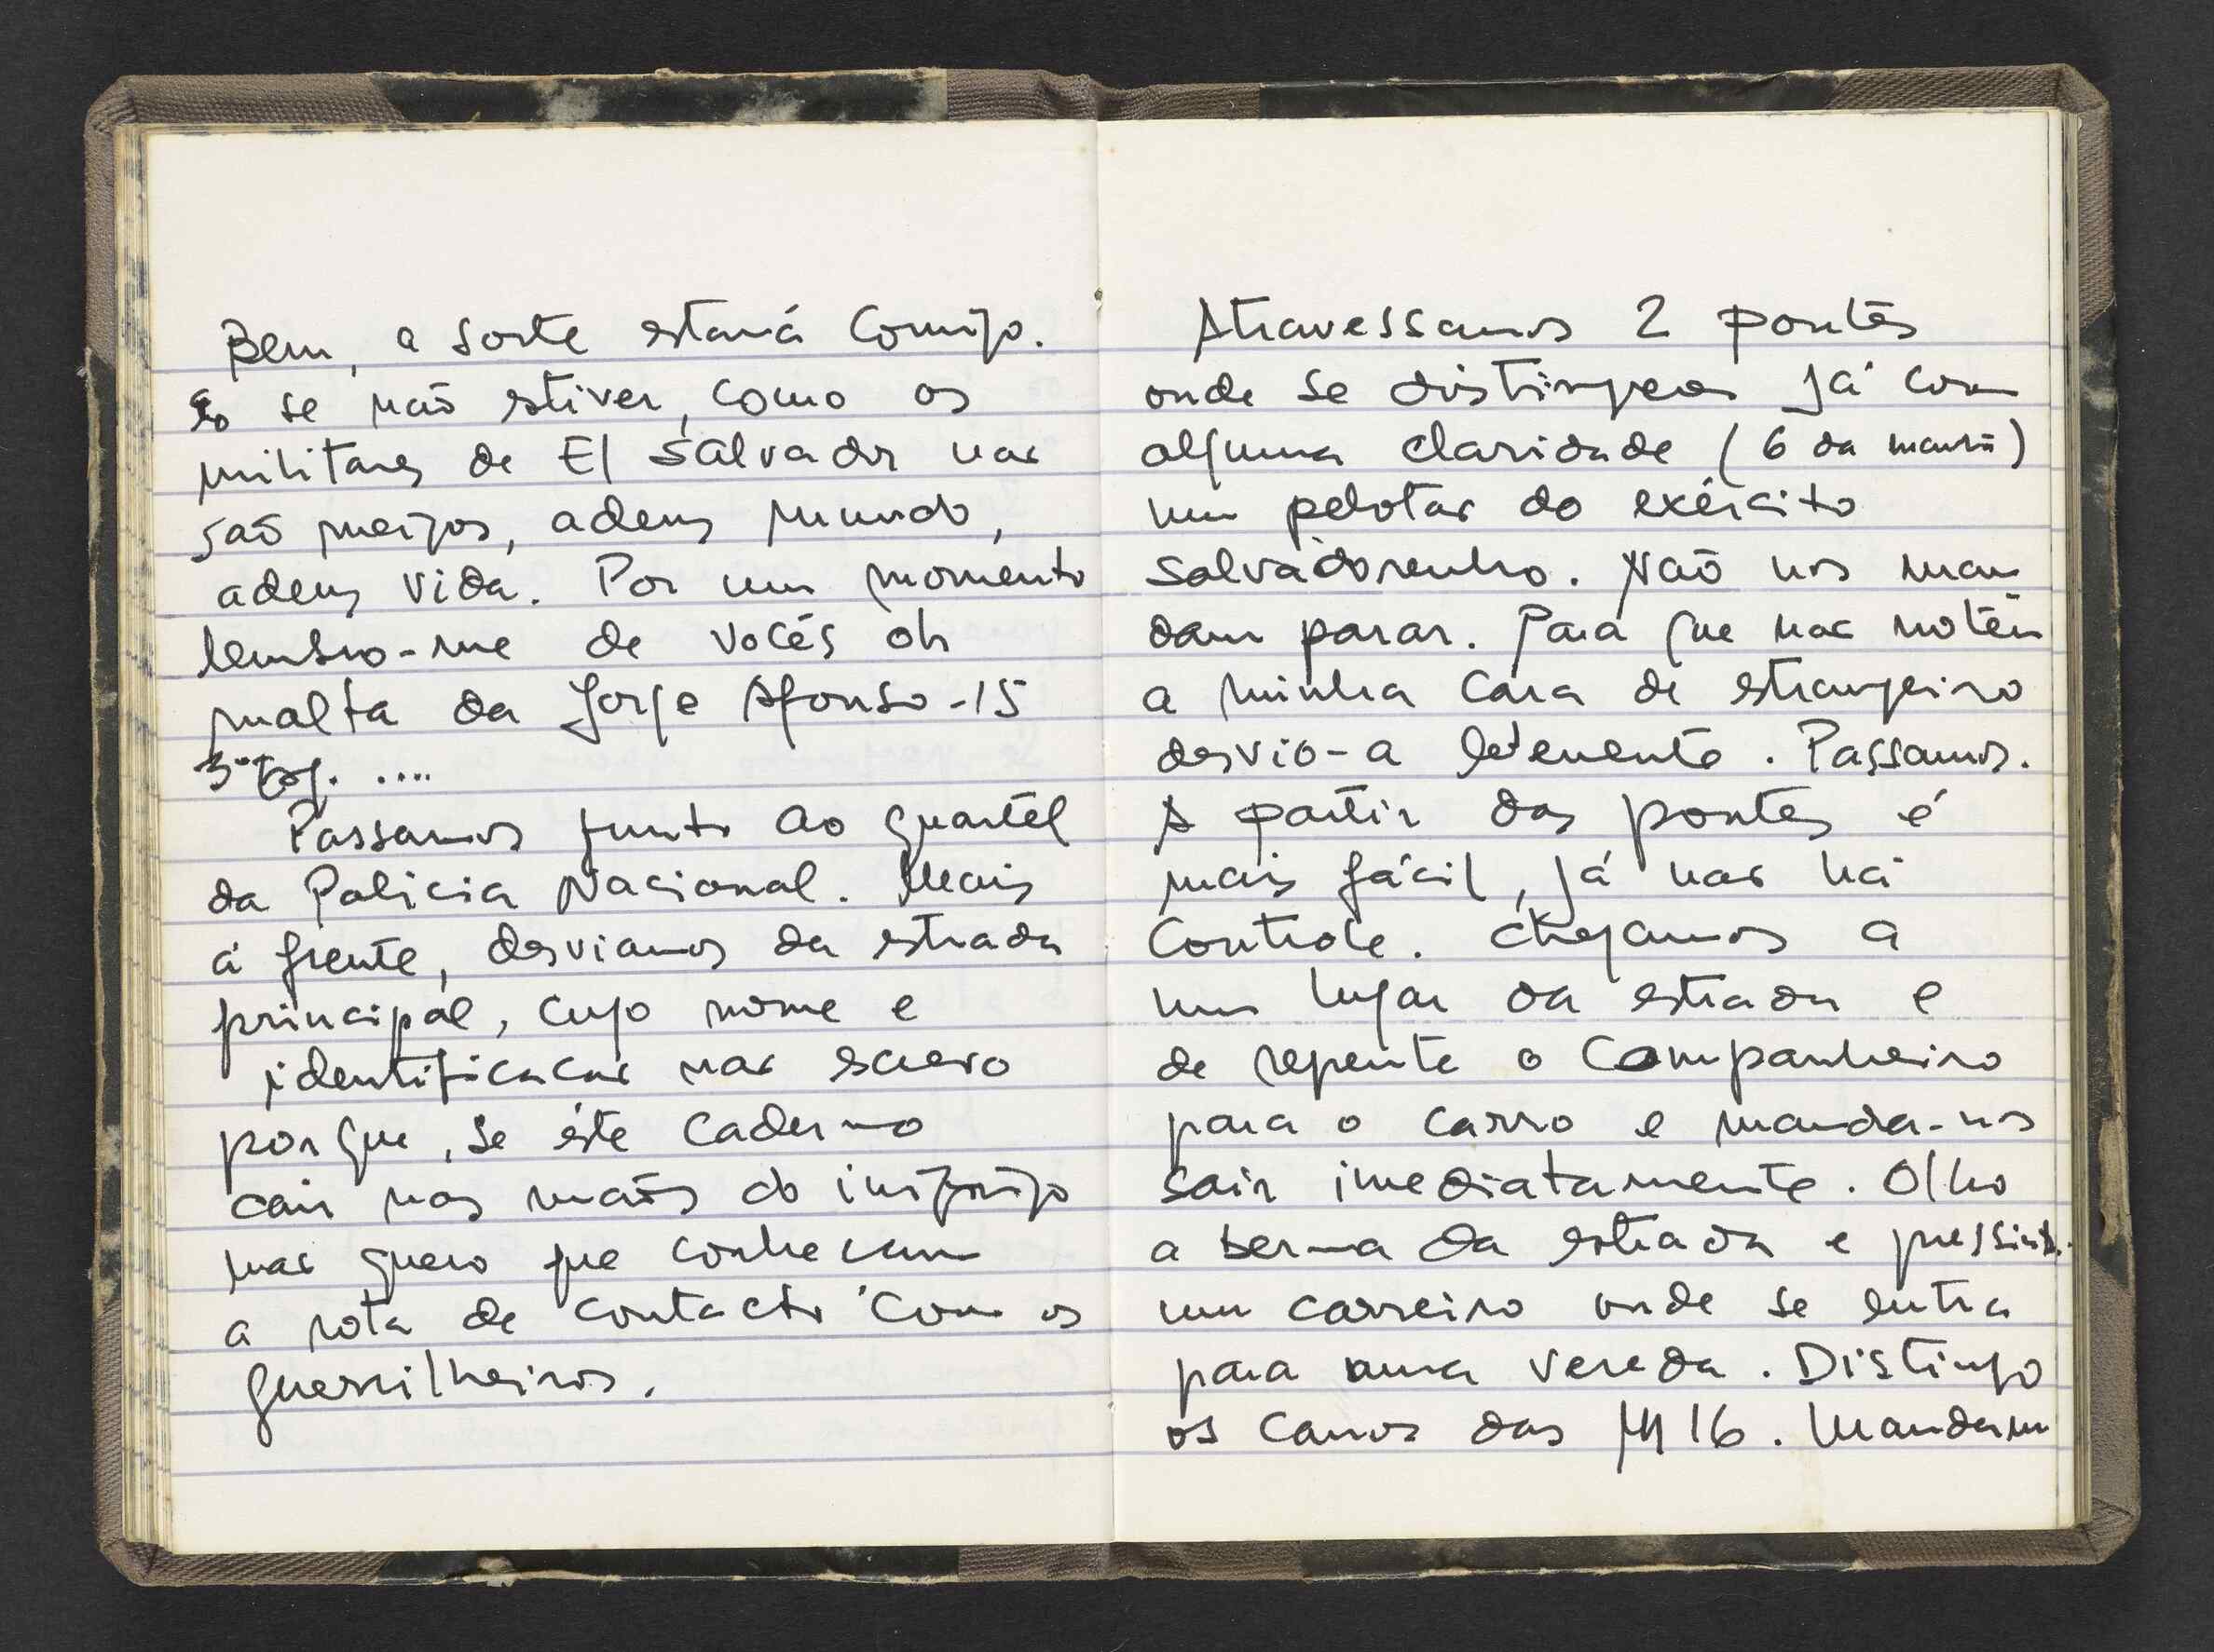 Bem, a sorte estará comigo.
e se não estiver, como os
militares de El Salvador nao
são meigos, adeus mundo,
adeus vida. Por um momento
lembro-me de vocês oh
malta da Jorge Afonso-15
3º Esq. ....
Passamos junto ao quartel
da Policia Nacional. Mais
á frente, desviamos da estrada
principal, cujo nome e
identificacao nao escrevo
porque, se éste caderno
cair nas mãos do inimigo
nao quero que conhecam
a rota de contacto com os
guerrilheiros.
Atravessamos 2 pontes
onde se distingue já com
alguma claridade (6 da manhã)
um pelotao do exército
salvadorenho. Não nos man
dam parar. Para que nao notem
a minha cara de estrangeiro
desvio-a letemente. Passamos.
A partir das pontes é
mais fácil, já nao há
controle. Chegamos a
um lugar da estrada e
de repente o companheiro
para o carro e manda-nos
sair imediatamente. Olho
a berma da estrada e pressinto
um carreiro onde se entra
para uma vereda. Distingo
os canos das M16. Mandam